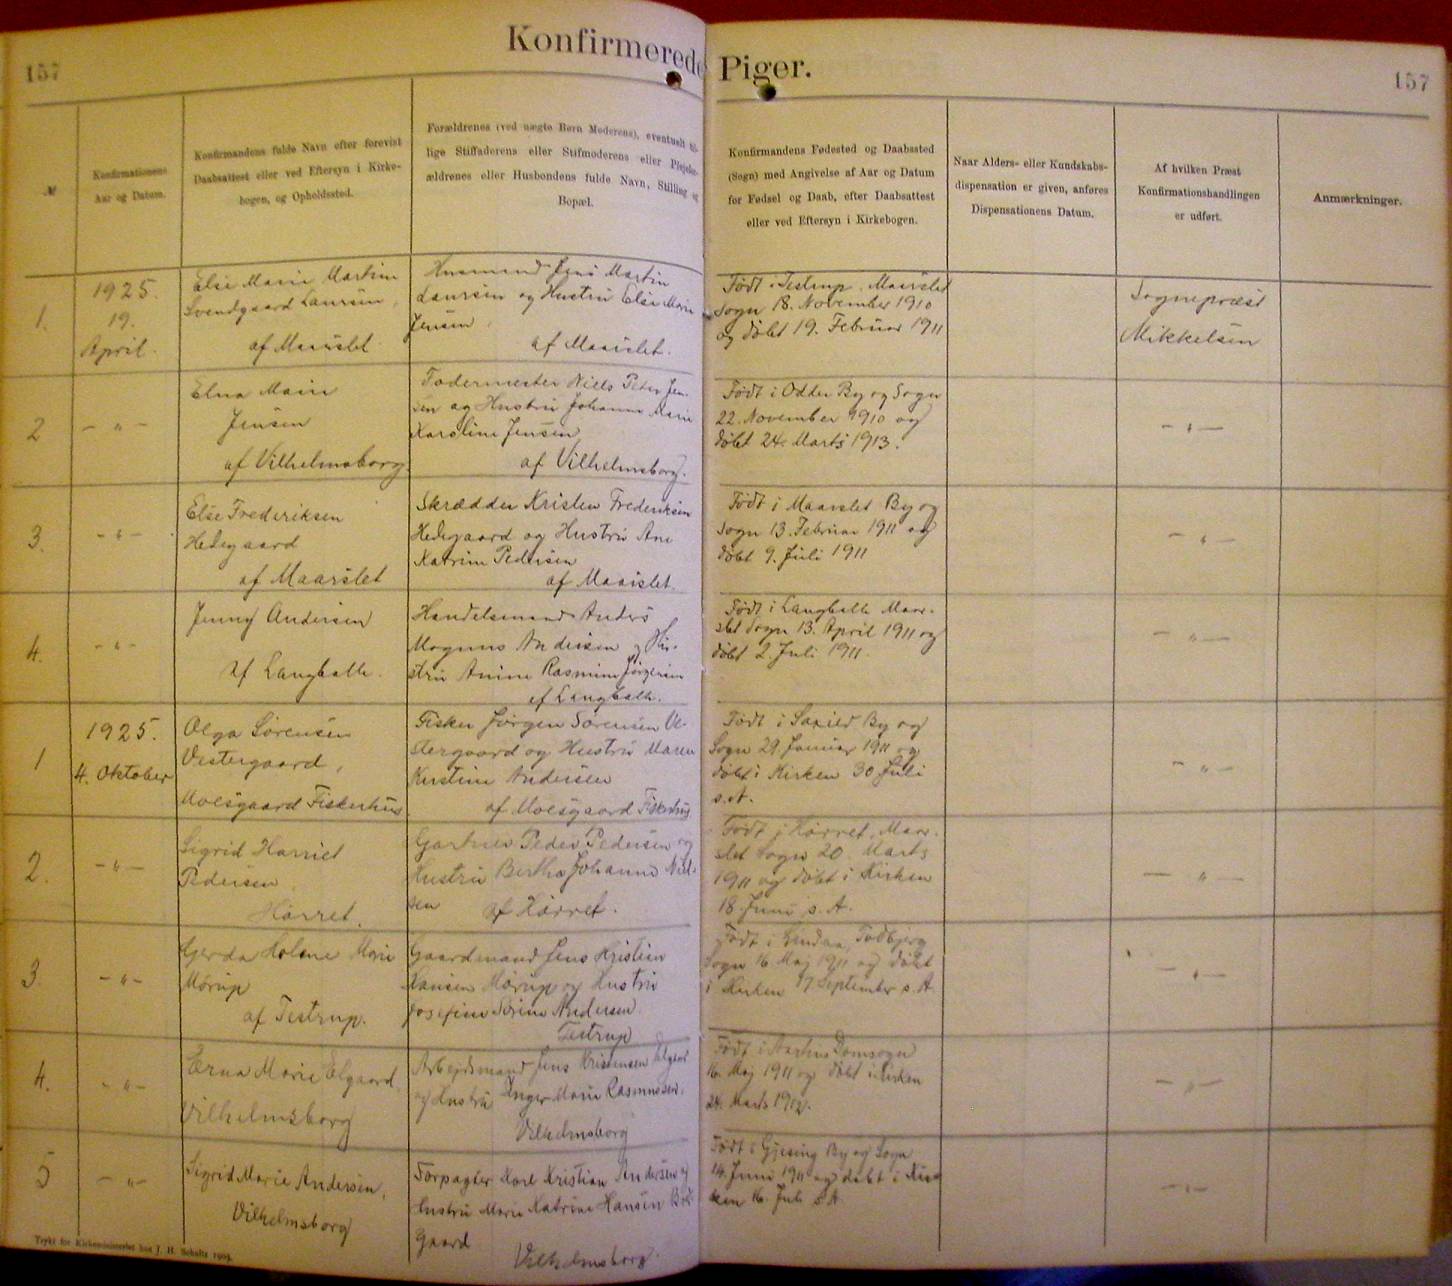 157
Konfirmerede Piger.
157
№
Konfirmationens
Aar og Datum.
Konfirmandens fulde Navn efter forevist
Daabsattest eller ved Eftersyn i Kirke-
bogen, og Opholdssted.
Forældrenes (ved uægte Børn Moderens), eventuelt til-
lige Stiffaderens eller Stifmoderens eller Plejefor-
ældrenes eller Husbondens fulde Navn, Stilling og
Bopæl.
Konfirmandens Fødested og Daabssted
(Sogn) med Angivelse af Aar og Datum
for Fødsel og Daab, efter Daabsattest
eller ved Eftersyn i Kirkebogen.
Naar Alders- eller Kundskabs-
dispensation er given, anføres
Dispensationens Datum.
Af hvilken Præst
Konfirmationshandlingen
er udført.
Anmærkninger.
1.
1925.
19.
April.
Else Marie Martine
Svendgaard Laursen,
af Maarslet
Husmand Jens Martin
Laursen og Hustru Else Marie
Jensen,
af Maarslet.
Født i Testrup, Maarslet
Sogn 18. November 1910
og døbt 19. Februar 1911
Sognepræst
Mikkelsen
2
- " -
Elna Marie
Jensen
af Vilhelmsborg.
Fodermester Niels Peter Jen-
sen og Hustru Johanne Marie
Karoline Jensen
af Vilhelmsborg.
Født i Odder By og Sogn
22. November 1910 og
døbt 24. Marts 1913.
- " -
3.
- " -
Else Frederiksen
Hedegaard
af Maarslet
Skrædder Kristen Frederiksen
Hedegaard og Hustru Ane
Katrine Pedersen
af Maarslet.
Født i Maarslet By og
Sogn 13. Februar 1911 og
døbt 9. Juli 1911
- " -
4.
- " -
Jenny Andersen
af Langballe.
Handelsmand Anders
Magnus Andersen og Hu-
stru Anine Rasmine Jørgensen
af Langballe.
Født i Langballe Maar-
slet Sogn 13. April 1911 og
døbt 2 Juli 1911.
- " -
1
1925.
4. Oktober
Olga Sørensen
Vestergaard,
Moesgaard Fiskerhus
Fisker Jørgen Sørensen Ve-
stergaard og Hustru Maren
Kirstine Andersen
af Moesgaard Fiskerhus
Født i Saxild By og
Sogn 29. Januar 1911 og
døbt i Kirken 30 Juli
s.A.
- " -
2.
- " -
Sigrid Harriet
Pedersen,
Hørret.
Gartner Peder Pedersen og
Hustru Bertha Johanne Niel-
sen
af Hørret.
Født i Hørret, Maar-
slet Sogn 20. Marts
1911 og døbt i Kirken
18. Juni s.A.
- " -
3.
- " -
Gerda Helene Marie
Mørup
af Testrup.
Gaardmand Jens Kristian
Hansen Mørup og Hustru
Josefine Sørine Andersen
Testrup
Født i Todbjerg
Sogn 16 Maj 1911 og døbt
i Kirken 17 September s.A.
- " -
4.
- " -
Erna Marie Elgaard,
Vilhelmsborg
Arbejdsmand Jens Kristensen Elgaard
og Hustru Inger Marie Rasmussen,
Vilhelmsborg
Født i Aarhus Domsogn
16. Maj 1911 og døbt i Kirken
24. Marts 1912.
- " -
5
- " -
Sigrid Marie Andersen,
Vilhelmsborg
Forpagter Karl Kristian Andersen og
Hustru Marie Katrine Hansen
gaard
Vilhelmsborg.
Født i Gjesing By og Sogn
14. Juni 1911 og døbt i Kir-
ken 16. Juli s.A.
- " -
Trykt for Kirkeministeriet hos J. H. Schultz 1909.